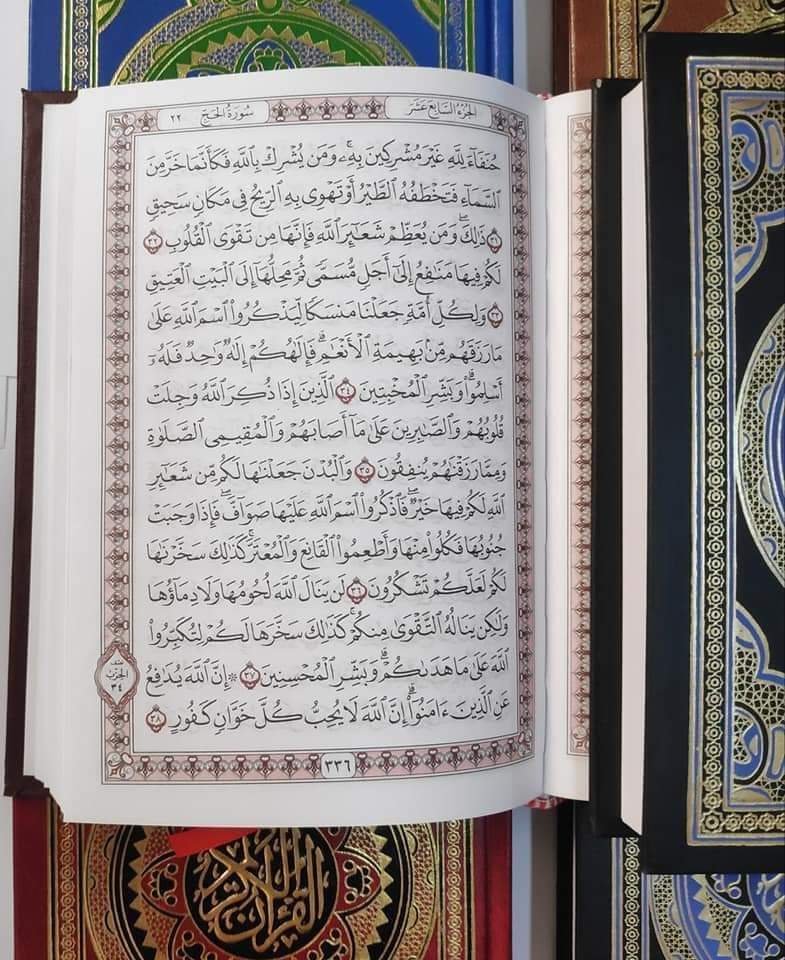 الجزء السابع عشر
سورة الحج
٢٢
حُنَفَآءَ لِلَّهِ غَيْرَ مُشْرِكِينَ بِهِۦۚ وَمَن يُشْرِكْ بِٱللَّهِ فَكَأَنَّمَا خَرَّ مِنَ
ٱلسَّمَآءِ فَتَخْطَفُهُ ٱلطَّيْرُ أَوْ تَهْوِى بِهِ ٱلرِّيحُ فِى مَكَانٍ سَحِيقٍ
٣١ ذَٰلِكَۖ وَمَن يُعَظِّمْ شَعَٰٓئِرَ ٱللَّهِ فَإِنَّهَا مِن تَقْوَى ٱلْقُلُوبِ ٣٢
لَكُمْ فِيهَا مَنَٰفِعُ إِلَىٰٓ أَجَلٍ مُّسَمًّى ثُمَّ مَحِلُّهَآ إِلَى ٱلْبَيْتِ ٱلْعَتِيقِ
٣٣ وَلِكُلِّ أُمَّةٍ جَعَلْنَا مَنسَكًا لِّيَذْكُرُوا۟ ٱسْمَ ٱللَّهِ عَلَىٰ
مَا رَزَقَهُم مِّنۢ بَهِيمَةِ ٱلْأَنْعَٰمِۗ فَإِلَٰهُكُمْ إِلَٰهٌ وَٰحِدٌ فَلَهُۥٓ
أَسْلِمُوا۟ۗ وَبَشِّرِ ٱلْمُخْبِتِينَ ٣٤ ٱلَّذِينَ إِذَا ذُكِرَ ٱللَّهُ وَجِلَتْ
قُلُوبُهُمْ وَٱلصَّٰبِرِينَ عَلَىٰ مَآ أَصَابَهُمْ وَٱلْمُقِيمِى ٱلصَّلَوٰةِ
وَمِمَّا رَزَقْنَٰهُمْ يُنفِقُونَ ٣٥ وَٱلْبُدْنَ جَعَلْنَٰهَا لَكُم مِّن شَعَٰٓئِرِ
ٱللَّهِ لَكُمْ فِيهَا خَيْرٌۖ فَٱذْكُرُوا۟ ٱسْمَ ٱللَّهِ عَلَيْهَا صَوَآفَّۖ فَإِذَا وَجَبَتْ
جُنُوبُهَا فَكُلُوا۟ مِنْهَا وَأَطْعِمُوا۟ ٱلْقَانِعَ وَٱلْمُعْتَرَّۚ كَذَٰلِكَ سَخَّرْنَٰهَا
لَكُمْ لَعَلَّكُمْ تَشْكُرُونَ ٣٦ لَن يَنَالَ ٱللَّهَ لُحُومُهَا وَلَا دِمَآؤُهَا
وَلَٰكِن يَنَالُهُ ٱلتَّقْوَىٰ مِنكُمْۚ كَذَٰلِكَ سَخَّرَهَا لَكُمْ لِتُكَبِّرُوا۟
ٱللَّهَ عَلَىٰ مَا هَدَىٰكُمْۗ وَبَشِّرِ ٱلْمُحْسِنِينَ ٣٧ ۞ إِنَّ ٱللَّهَ يُدَٰفِعُ
عَنِ ٱلَّذِينَ ءَامَنُوٓا۟ۗ إِنَّ ٱللَّهَ لَا يُحِبُّ كُلَّ خَوَّانٍ كَفُورٍ ٣٨
نصف
الحزب
٣٤
٣٣٦
القرآن الكريم